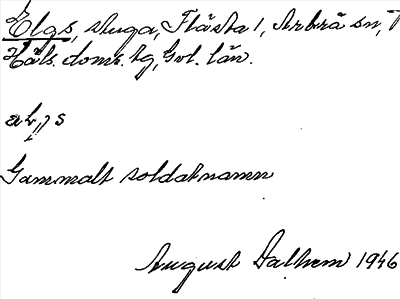 Elgs, stuga, Flästa 1, Arbrå sn,
Häls. doms. tg, Gvl. län.
Gammalt soldatnamn
August Dalhem 1946